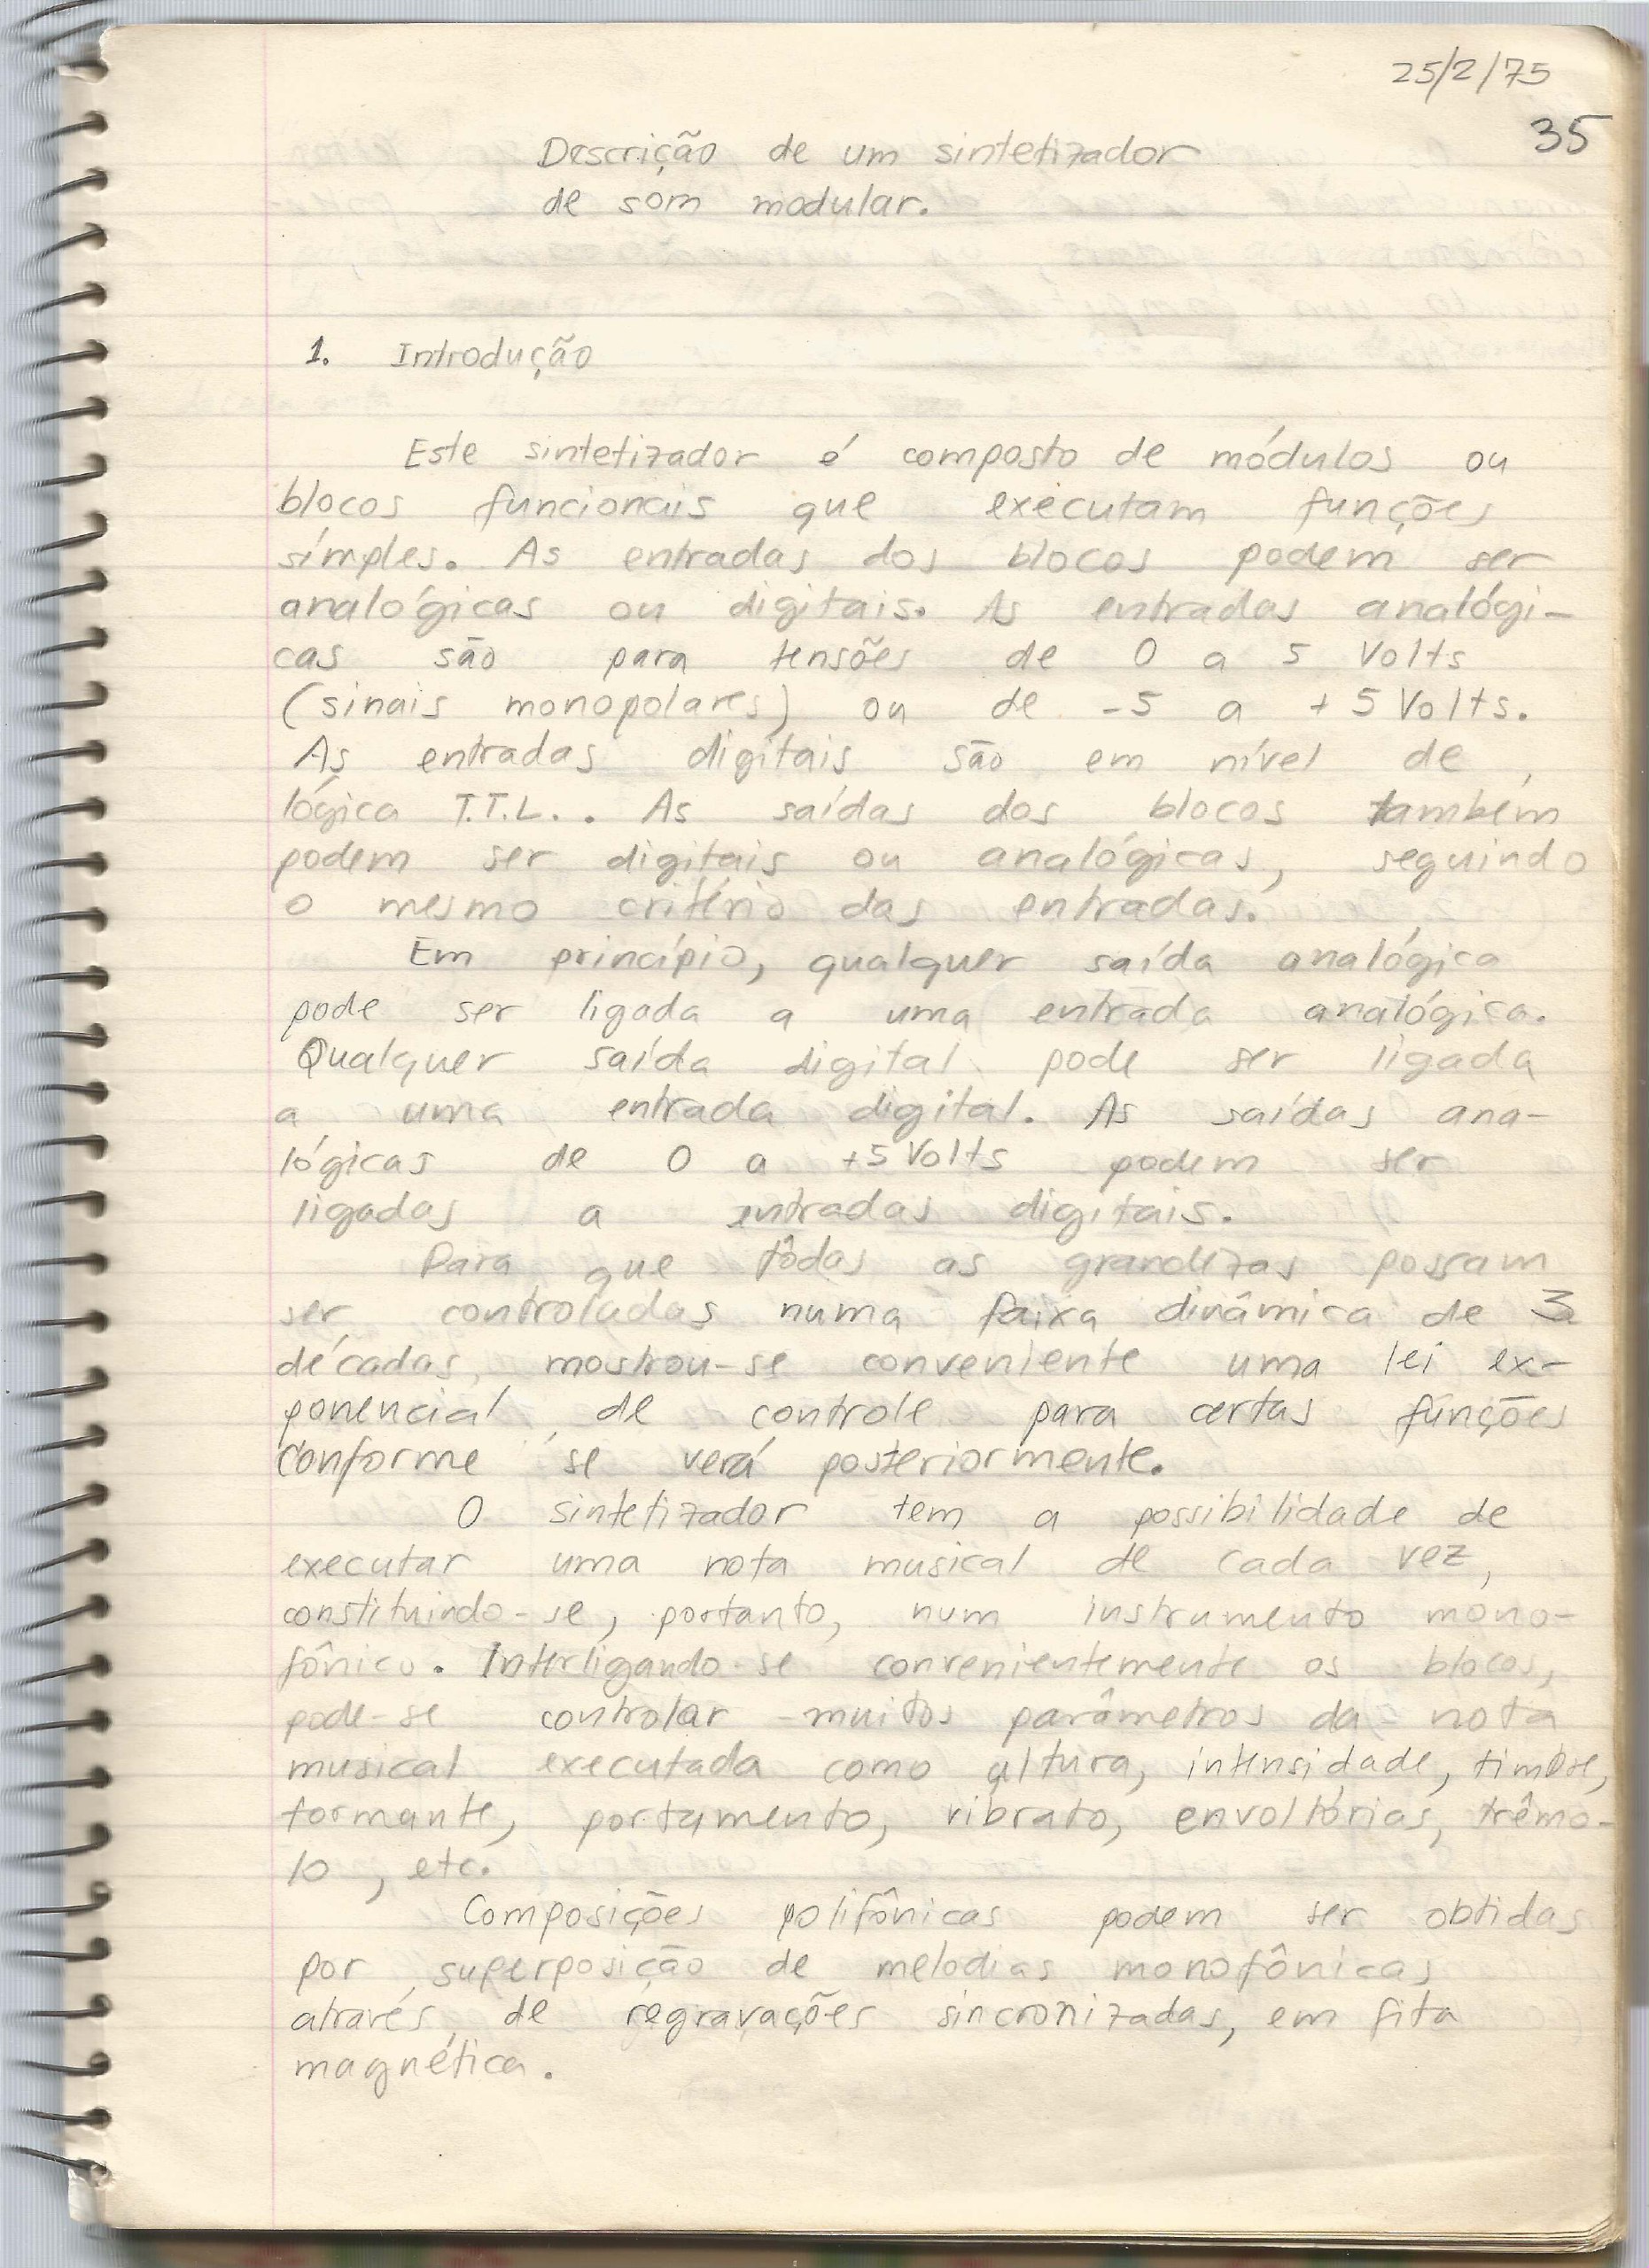 25/2/75
35
Descrição de um sintetizador
de som modular.
1. Introdução
Este sintetizador é composto de módulos ou
blocos funcionais que executam funções
símples. As entradas dos blocos podem ser
analógicas ou digitais. As entradas analógi-
cas são para tensões de 0 a 5 Volts
(sinais monopolares) ou de -5 a +5 Volts.
As entradas digitais são em nível de
lógica T.T.L.. As saídas dos blocos também
podem ser digitais ou analógicas, seguindo
o mesmo critério das entradas.
Em princípio, qualquer saída analógica
pode ser ligada a uma entrada analógica.
Qualquer saída digital pode ser ligada
a uma entrada digital. As saídas ana-
lógicas de 0 a +5 Volts podem ser
ligadas a entradas digitais.
Para que tôdas as grandezas possam
ser controladas numa faixa dinâmica de 3
décadas, mostrou-se conveniente uma lei ex-
ponencial de controle para certas funções
conforme se verá posteriormente.
O sintetizador tem a possibilidade de
executar uma nota musical de cada vez,
constituindo-se, portanto, num instrumento mono-
fônico. Interligando-se convenientemente os blocos,
pode-se controlar muitos parâmetros da nota
musical executada como altura, intensidade, timbre,
formante, portamento, vibrato, envoltórias, trêmo-
lo, etc.
Composições polifônicas podem ser obtidas
por superposição de melodias monofônicas
através de regravações sincronizadas, em fita
magnética.